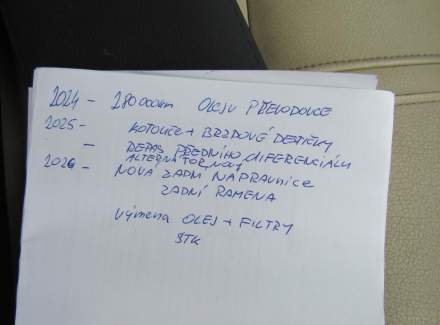 2024 - 280 000km OLEJU PŘEVODOVCE
2025 - KOTOUČE + BRZDOVÉ DESTIČKY
- REPAS PŘEDNÍHO DIFERENCIÁLU
ALTERNÁTOR NOVÝ
2026 - NOVÁ ZADNÍ NÁPRAVNICE
ZADNÍ RAMENA
výmena OLEJ + FILTRY
STK